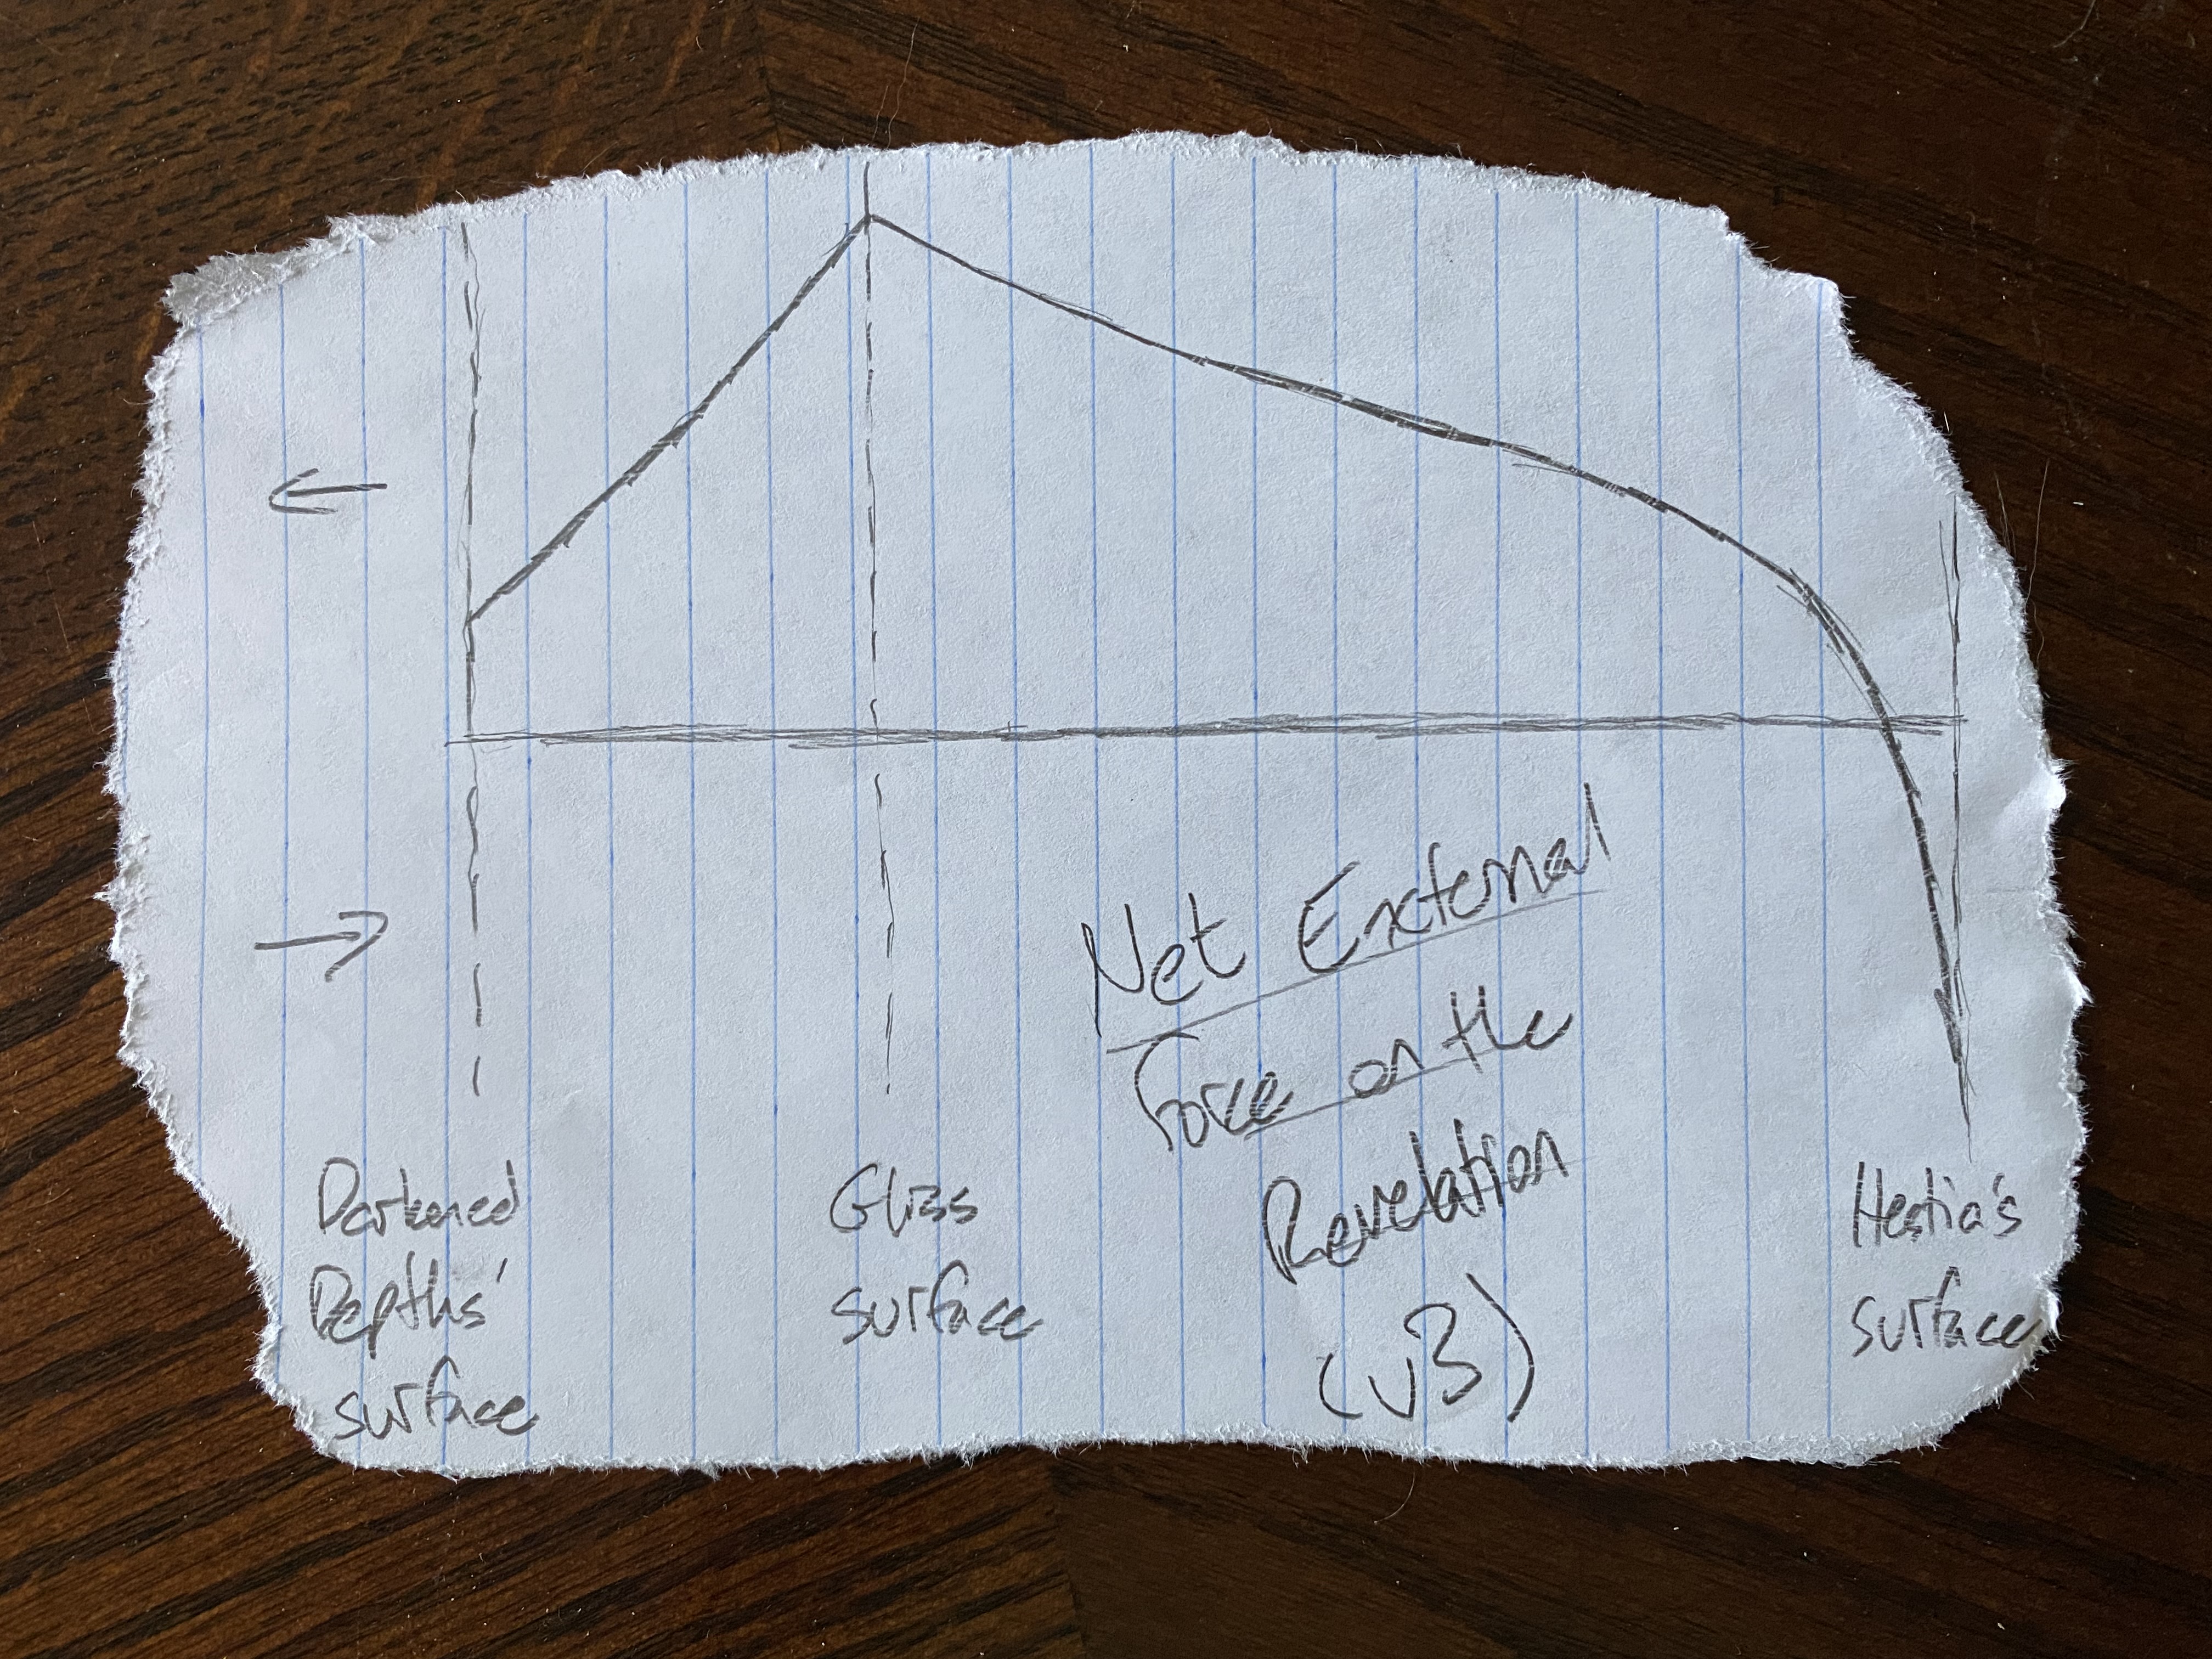 Net External
Force on the
Revelation
(v3)
Darkened
Depths'
surface
Gliss
surface
Hestia's
surface